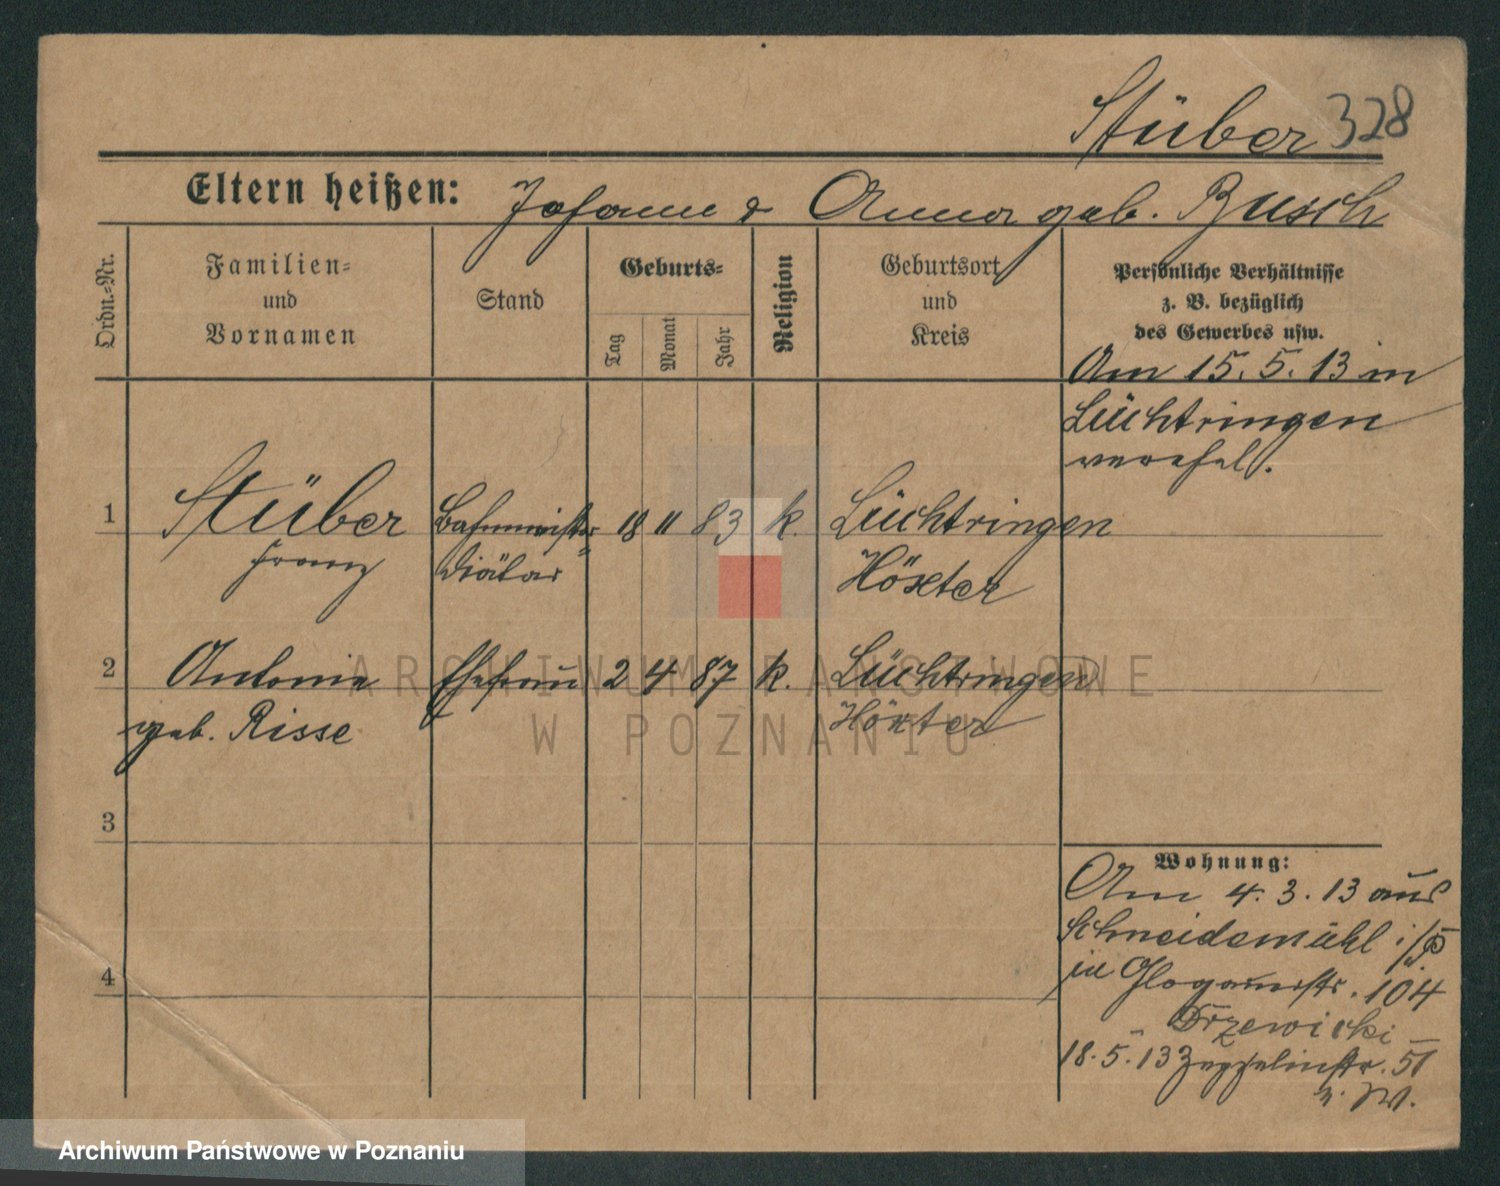 Stüber 328
Eltern heißen: Johann & Anna geb. Busch
Ordn.-Nr.
Familien- und Vornamen
Stand
Geburts-
Tag
Monat
Jahr
Religion
Geburtsort und Kreis
Persönliche Verhältnisse
z. B. bezüglich
des Gewerbes usw.
Am 15. 5. 13 in
Lüchtringen
verehel.
1 Stüber Bahnmeister 18 11 83 k. Lüchtringen
Franz Diätar Höxter
2 Antonie Ehefrau 2 4 87 k. Lüchtringen
geb. Risse Höxter
3
4
Wohnung:
Am 4. 3. 13 aus
Schneidemühl i/P.
in Glogauerstr. 104
Drzewicki
18. 5. 13 Zeppelinstr. 51
n. W.
ARCHIWUM PAŃSTWOWE
W POZNANIU
Archiwum Państwowe w Poznaniu